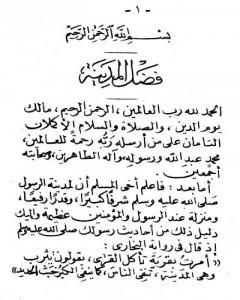 - ١ -
بسم الله الرحمن الرحيم
فضل المدينة
الحمد لله رب العالمين، الرحمن الرحيم، مالك
يوم الدين، والصلاة والسلام الأكملان
التامان على من أرسله ربه رحمة للعالمين،
محمد عبد الله ورسوله، وآله الطاهرين، وصحابته
أجمعين.
أما بعد: فاعلم أخي المسلم أن لمدينة الرسول
صلى الله عليه وسلم شرفا كبيرا، وقدرا رفيعا،
ومنزلة عند الرسول والمؤمنين عظيمة وإليك
دليل ذلك من أحاديث رسولك صلى الله عليه وسلم
إذ قال في رواية البخاري:
«أمرت بقرية تأكل القرى، يقولون يثرب
وهي المدينة، تنفي الناس، كما ينفي الكير خبث الحديد»